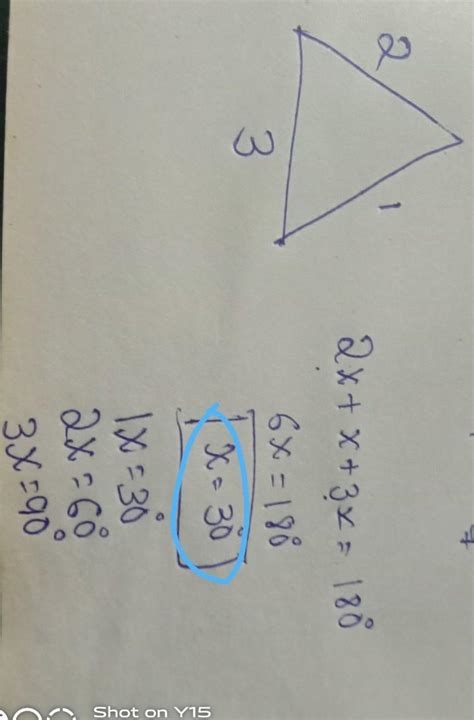 2
1
3
2x + x + 3x = 180°
6x = 180°
x = 30°
1x = 30°
2x = 60°
3x = 90°
Shot on Y15